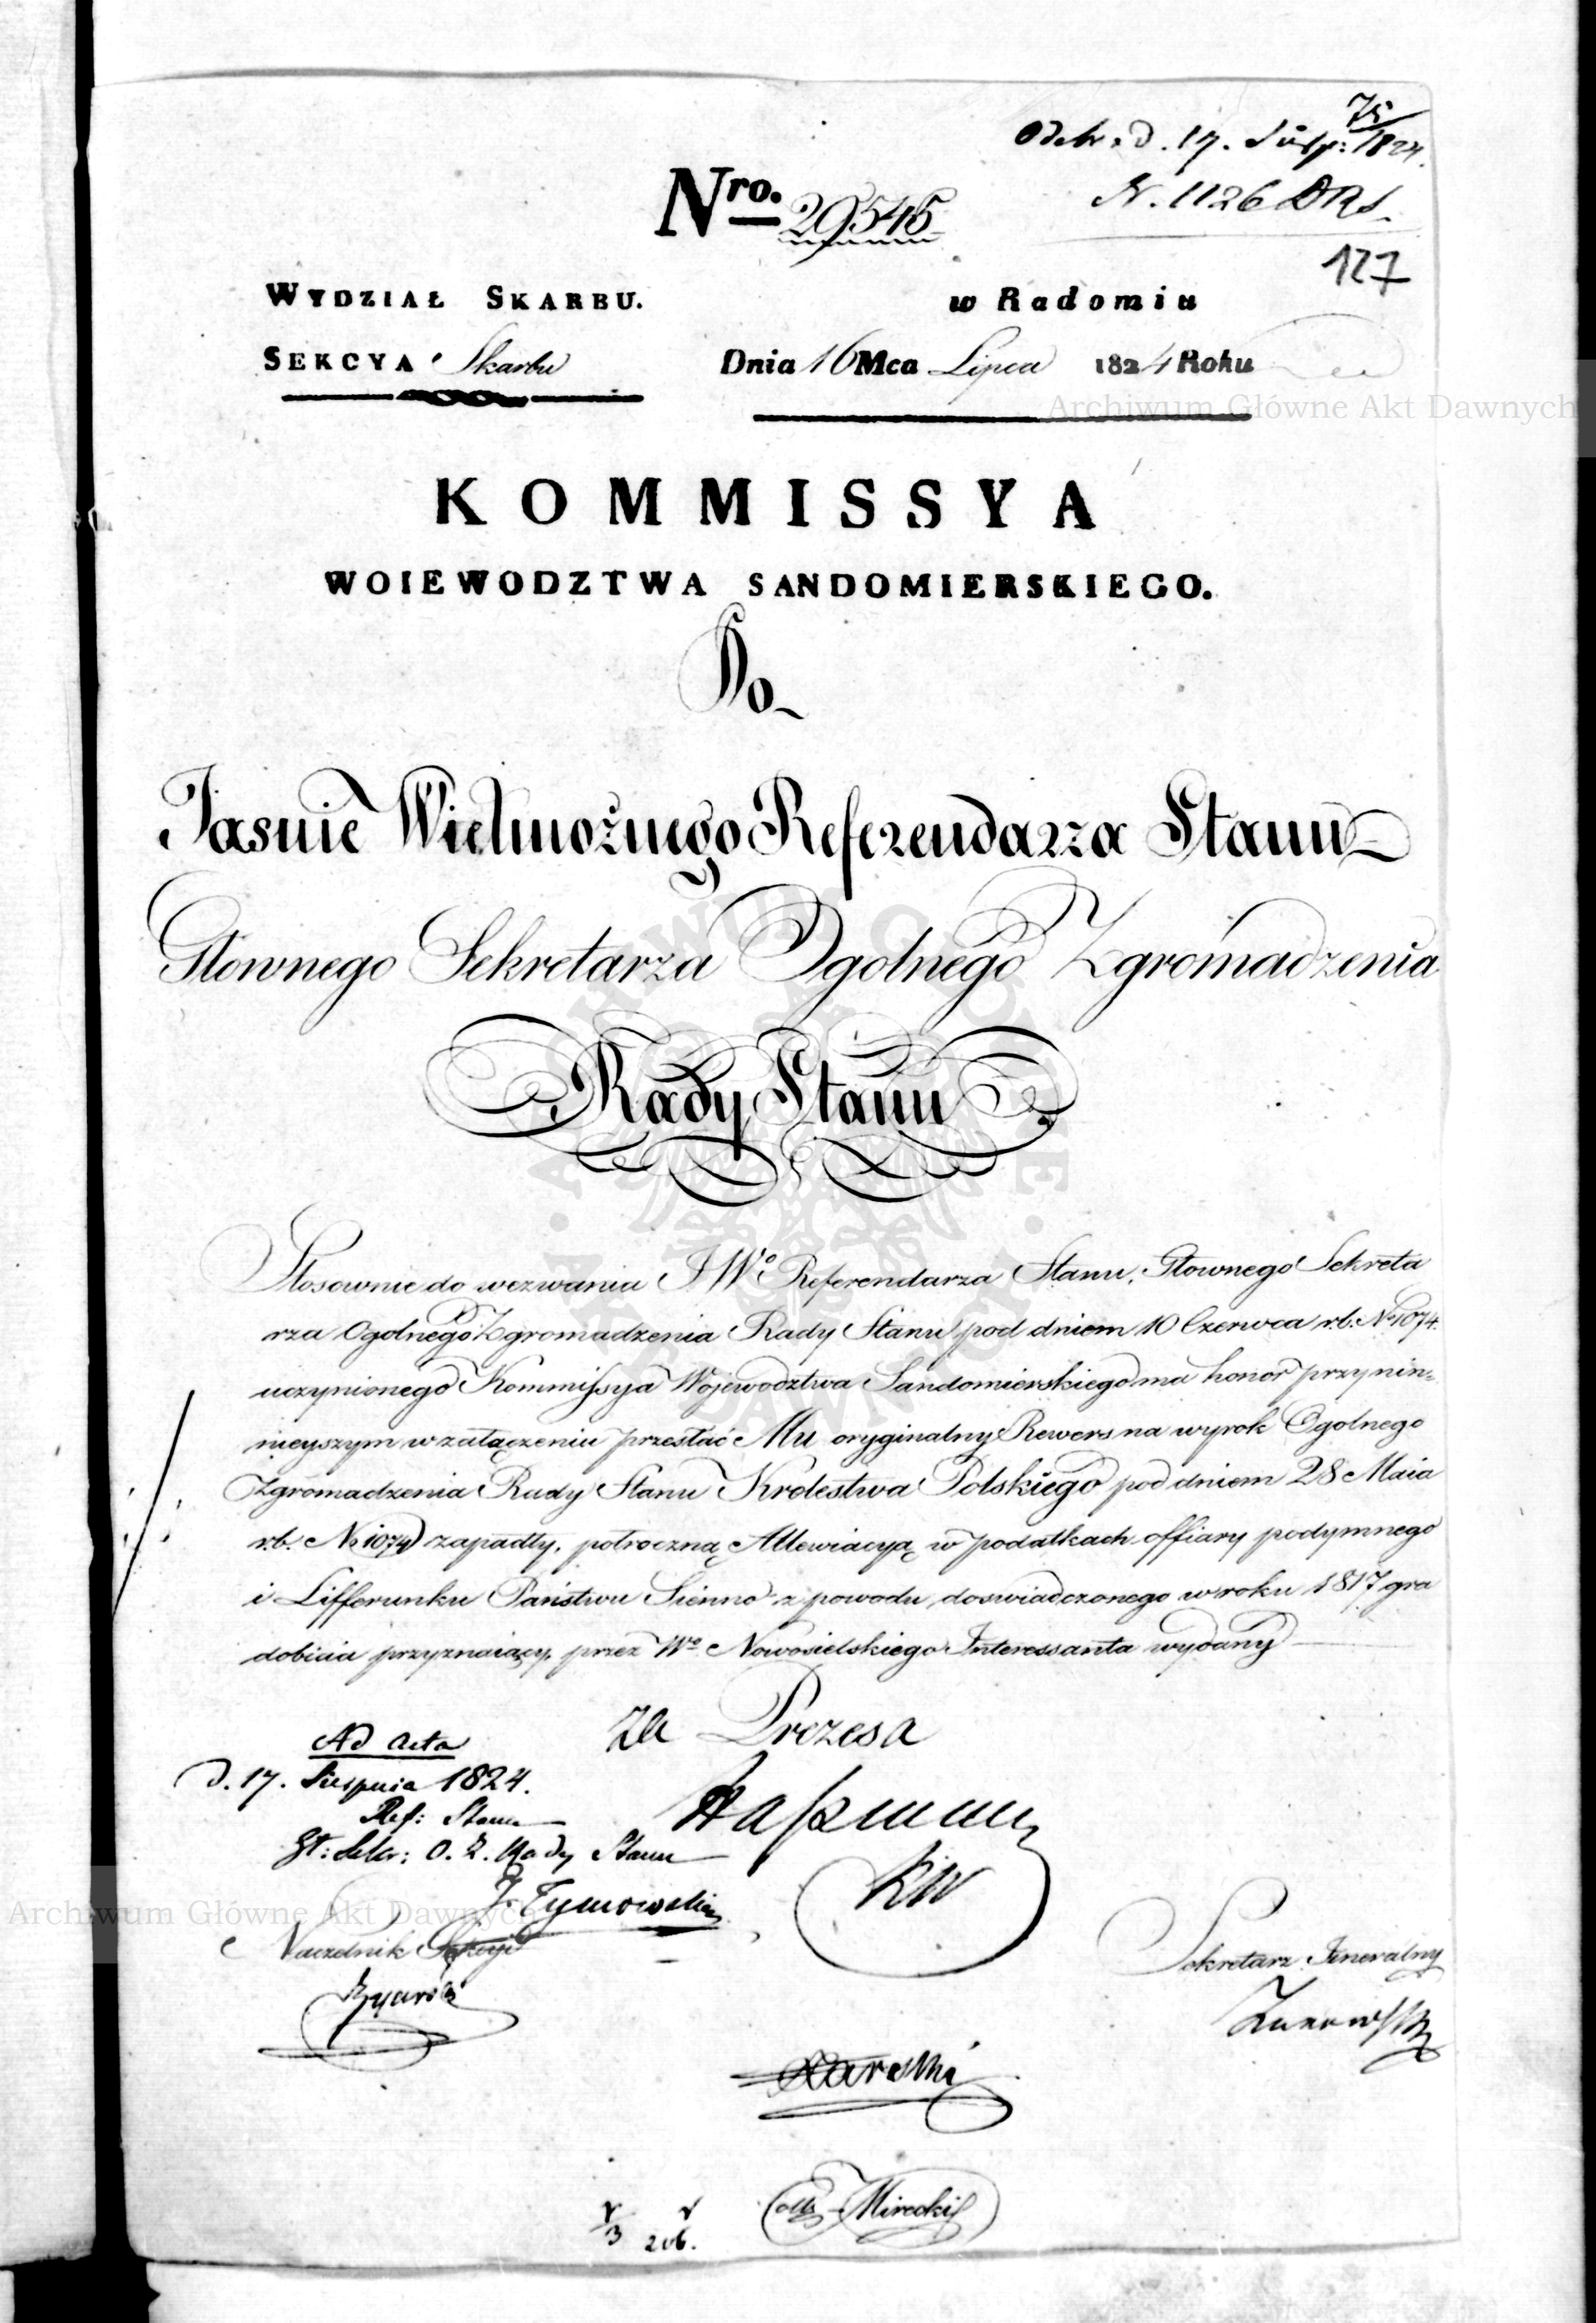 75
Odebr. d. 17. Sierp: 1824.
N. 1126 DRS.
127
Nro. 29545
WYDZIAŁ SKARBU.
w Radomiu
SEKCYA Skarbu
Dnia 16 Mca Lipca 1824 Roku
Archiwum Główne Akt Dawnych
KOMMISSYA
WOIEWODZTWA SANDOMIERSKIEGO.
Do
Jasnie Wielmożnego Referendarza Stanu
Głownego Sekretarza Ogolnego Zgromadzenia
Rady Stanu
Stosownie do wezwania JWo Referendarza Stanu, Głownego Sekreta
rza Ogolnego Zgromadzenia Rady Stanu pod dniem 10 Czerwca r.b. No 1074.
uczynionego Kommissya Wojewodztwa Sandomierskiego ma honor przy nin-
nieyszym w załączeniu przesłać Mu oryginalny Rewers na wyrok Ogolnego
Zgromadzenia Rady Stanu Krolestwa Polskiego pod dniem 28 Maia
r.b. No 1074 zapadły, potroczną Allewiacyą w podatkach offiary podymnego
i Lifferunku Państwu Sienno z powodu doswiadczonego w roku 1817 gra
dobicia przyznaiący, przez Wo Nowosielskiego Interessanta wydany
Za Prezesa
Ad acta
d. 17. Sierpnia 1824.
Ref: Stanu
Gł: Sekr: O. Z. Rady Stanu
J. Tymowski
KW
Archiwum Główne Akt Dawnych
Naczelnik Sekcyi
Sekretarz Jeneralny
Mirecki